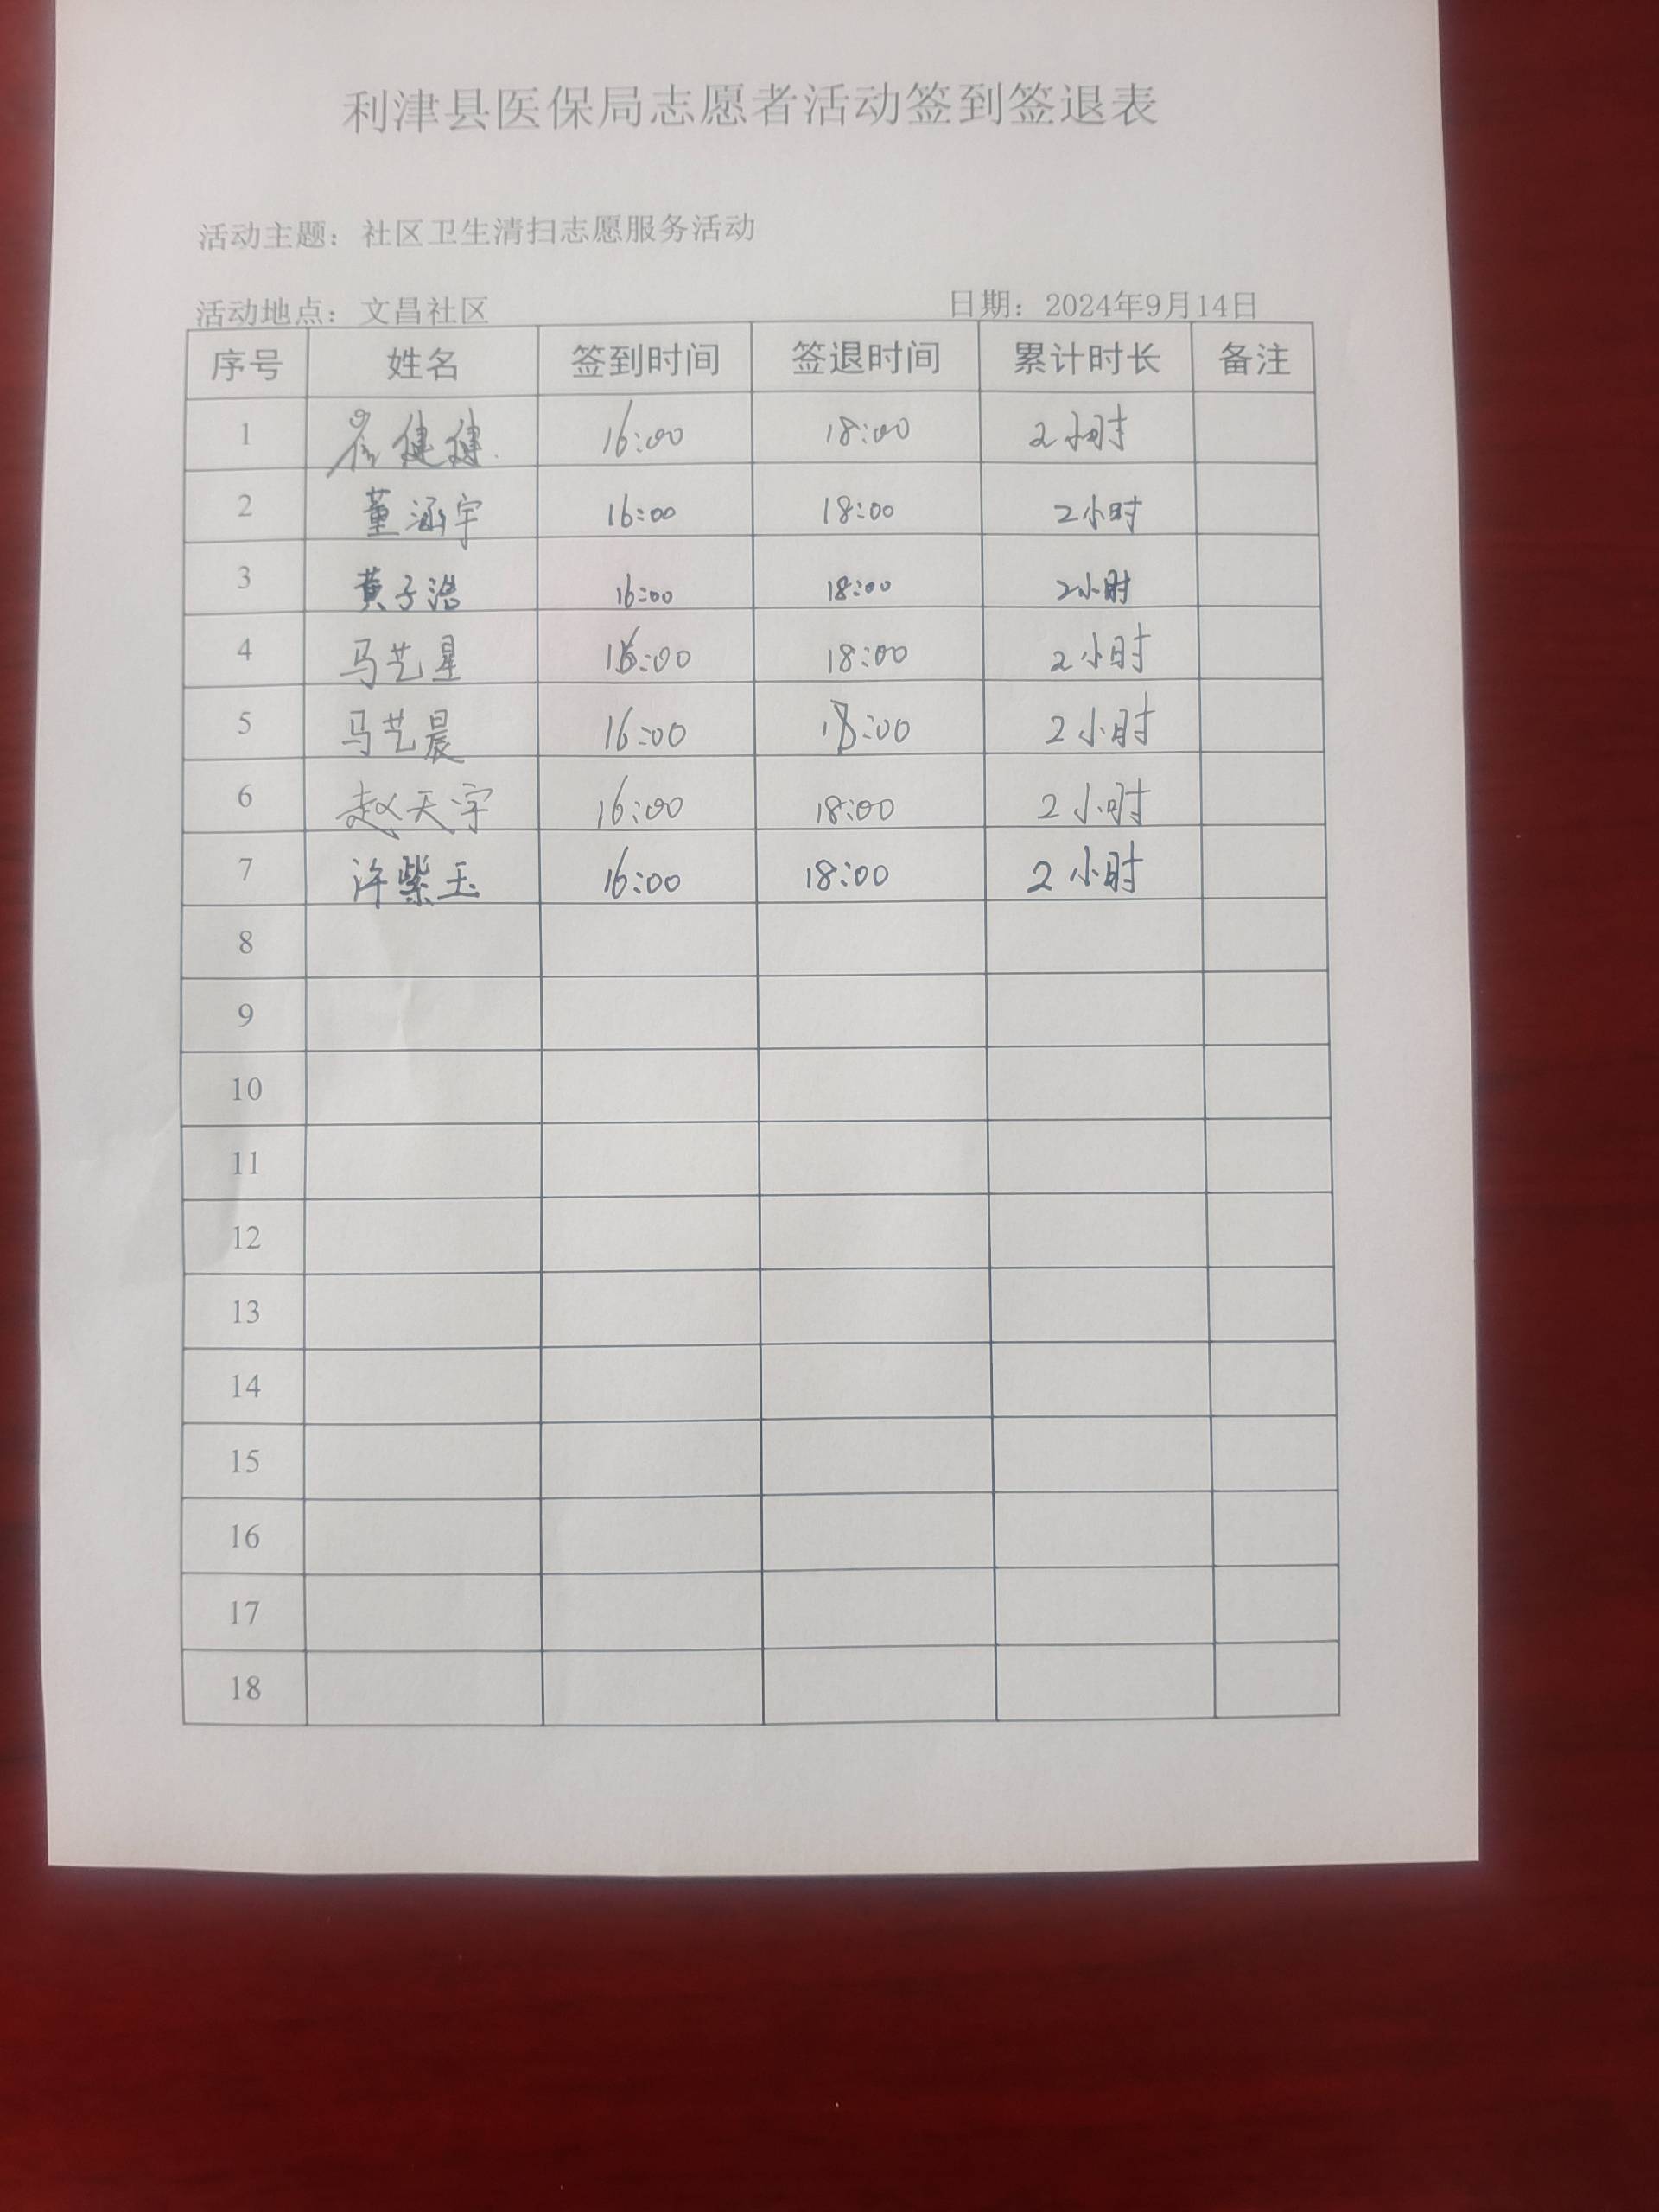 利津县医保局志愿者活动签到签退表
活动主题：社区卫生清扫志愿服务活动
活动地点：文昌社区 日期：2024年9月14日
序号 姓名 签到时间 签退时间 累计时长 备注
1 健健 16:00 18:00 2小时
2 董涵宇 16:00 18:00 2小时
3 黄子浩 16:00 18:00 2小时
4 马艺星 16:00 18:00 2小时
5 马艺晨 16:00 18:00 2小时
6 赵天宇 16:00 18:00 2小时
7 许紫玉 16:00 18:00 2小时
8
9
10
11
12
13
14
15
16
17
18